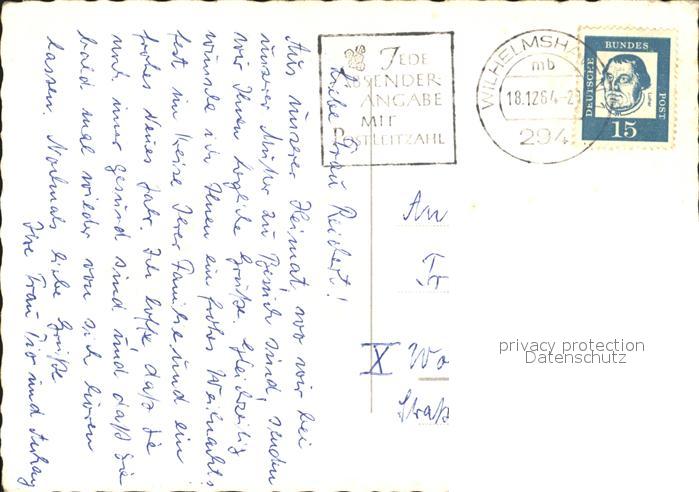 Liebe Frau Reichert!
Aus unserer Heimat, wo wir bei
unserer Mutter zu Besuch sind, senden
wir Ihnen herzliche Grüße. Gleichzeitig
wünsche ich Ihnen ein frohes Weihnachts-
fest im Kreise Ihrer Familie und ein
frohes Neues Jahr. Ich hoffe daß Sie
und immer gesund sind und daß Sie
bald mal wieder von sich hören
lassen. Nochmals liebe Grüße
Ihre Frau und
JEDE
ABSENDER-
ANGABE
MIT
POSTLEITZAHL
WILHELMSHA
mb
18.12.64-2
294
DEUTSCHE BUNDES POST
15
An
Fr
X Wo
Straß
privacy protection
Datenschutz